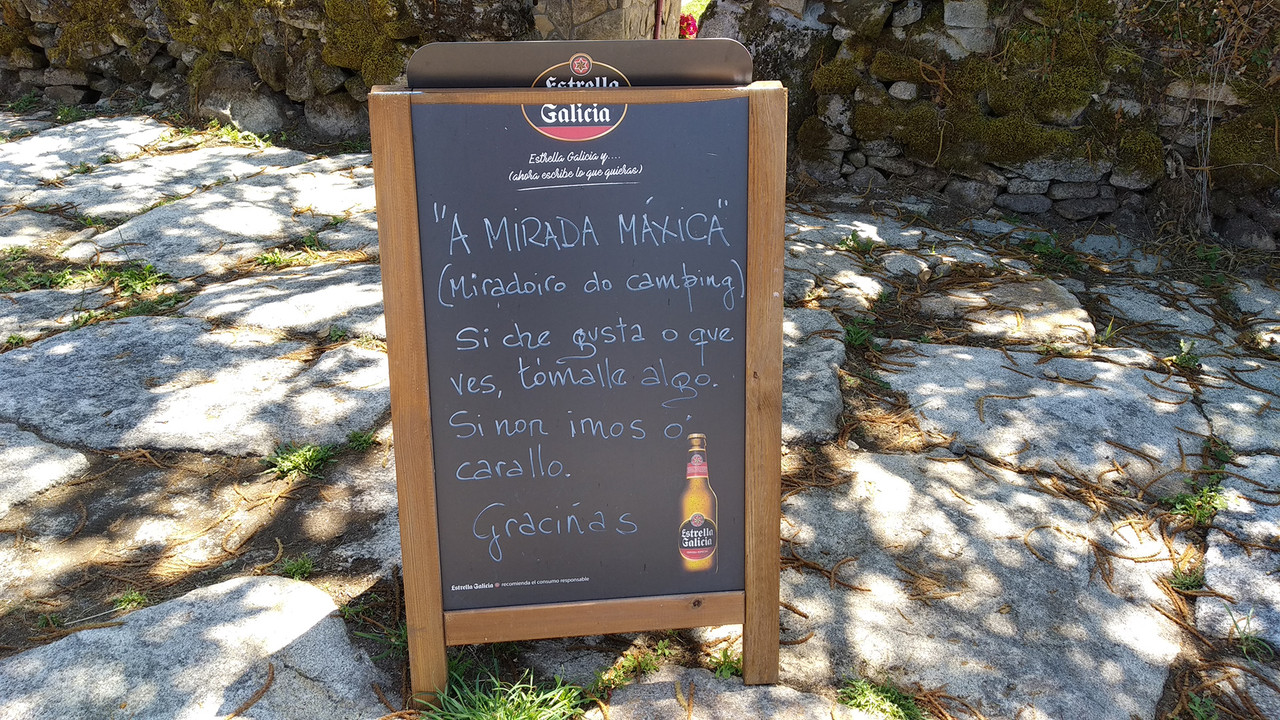 Estrella
Galicia
Estrella Galicia y....
(ahora escribe lo que quieras)
"A MIRADA MÁXICA"
(Miradoiro do camping)
Si che gusta o que
ves, tómalle algo.
Si non imos ó
carallo.
Graciñas
Estrella
Galicia
Estrella Galicia recomienda el consumo responsable